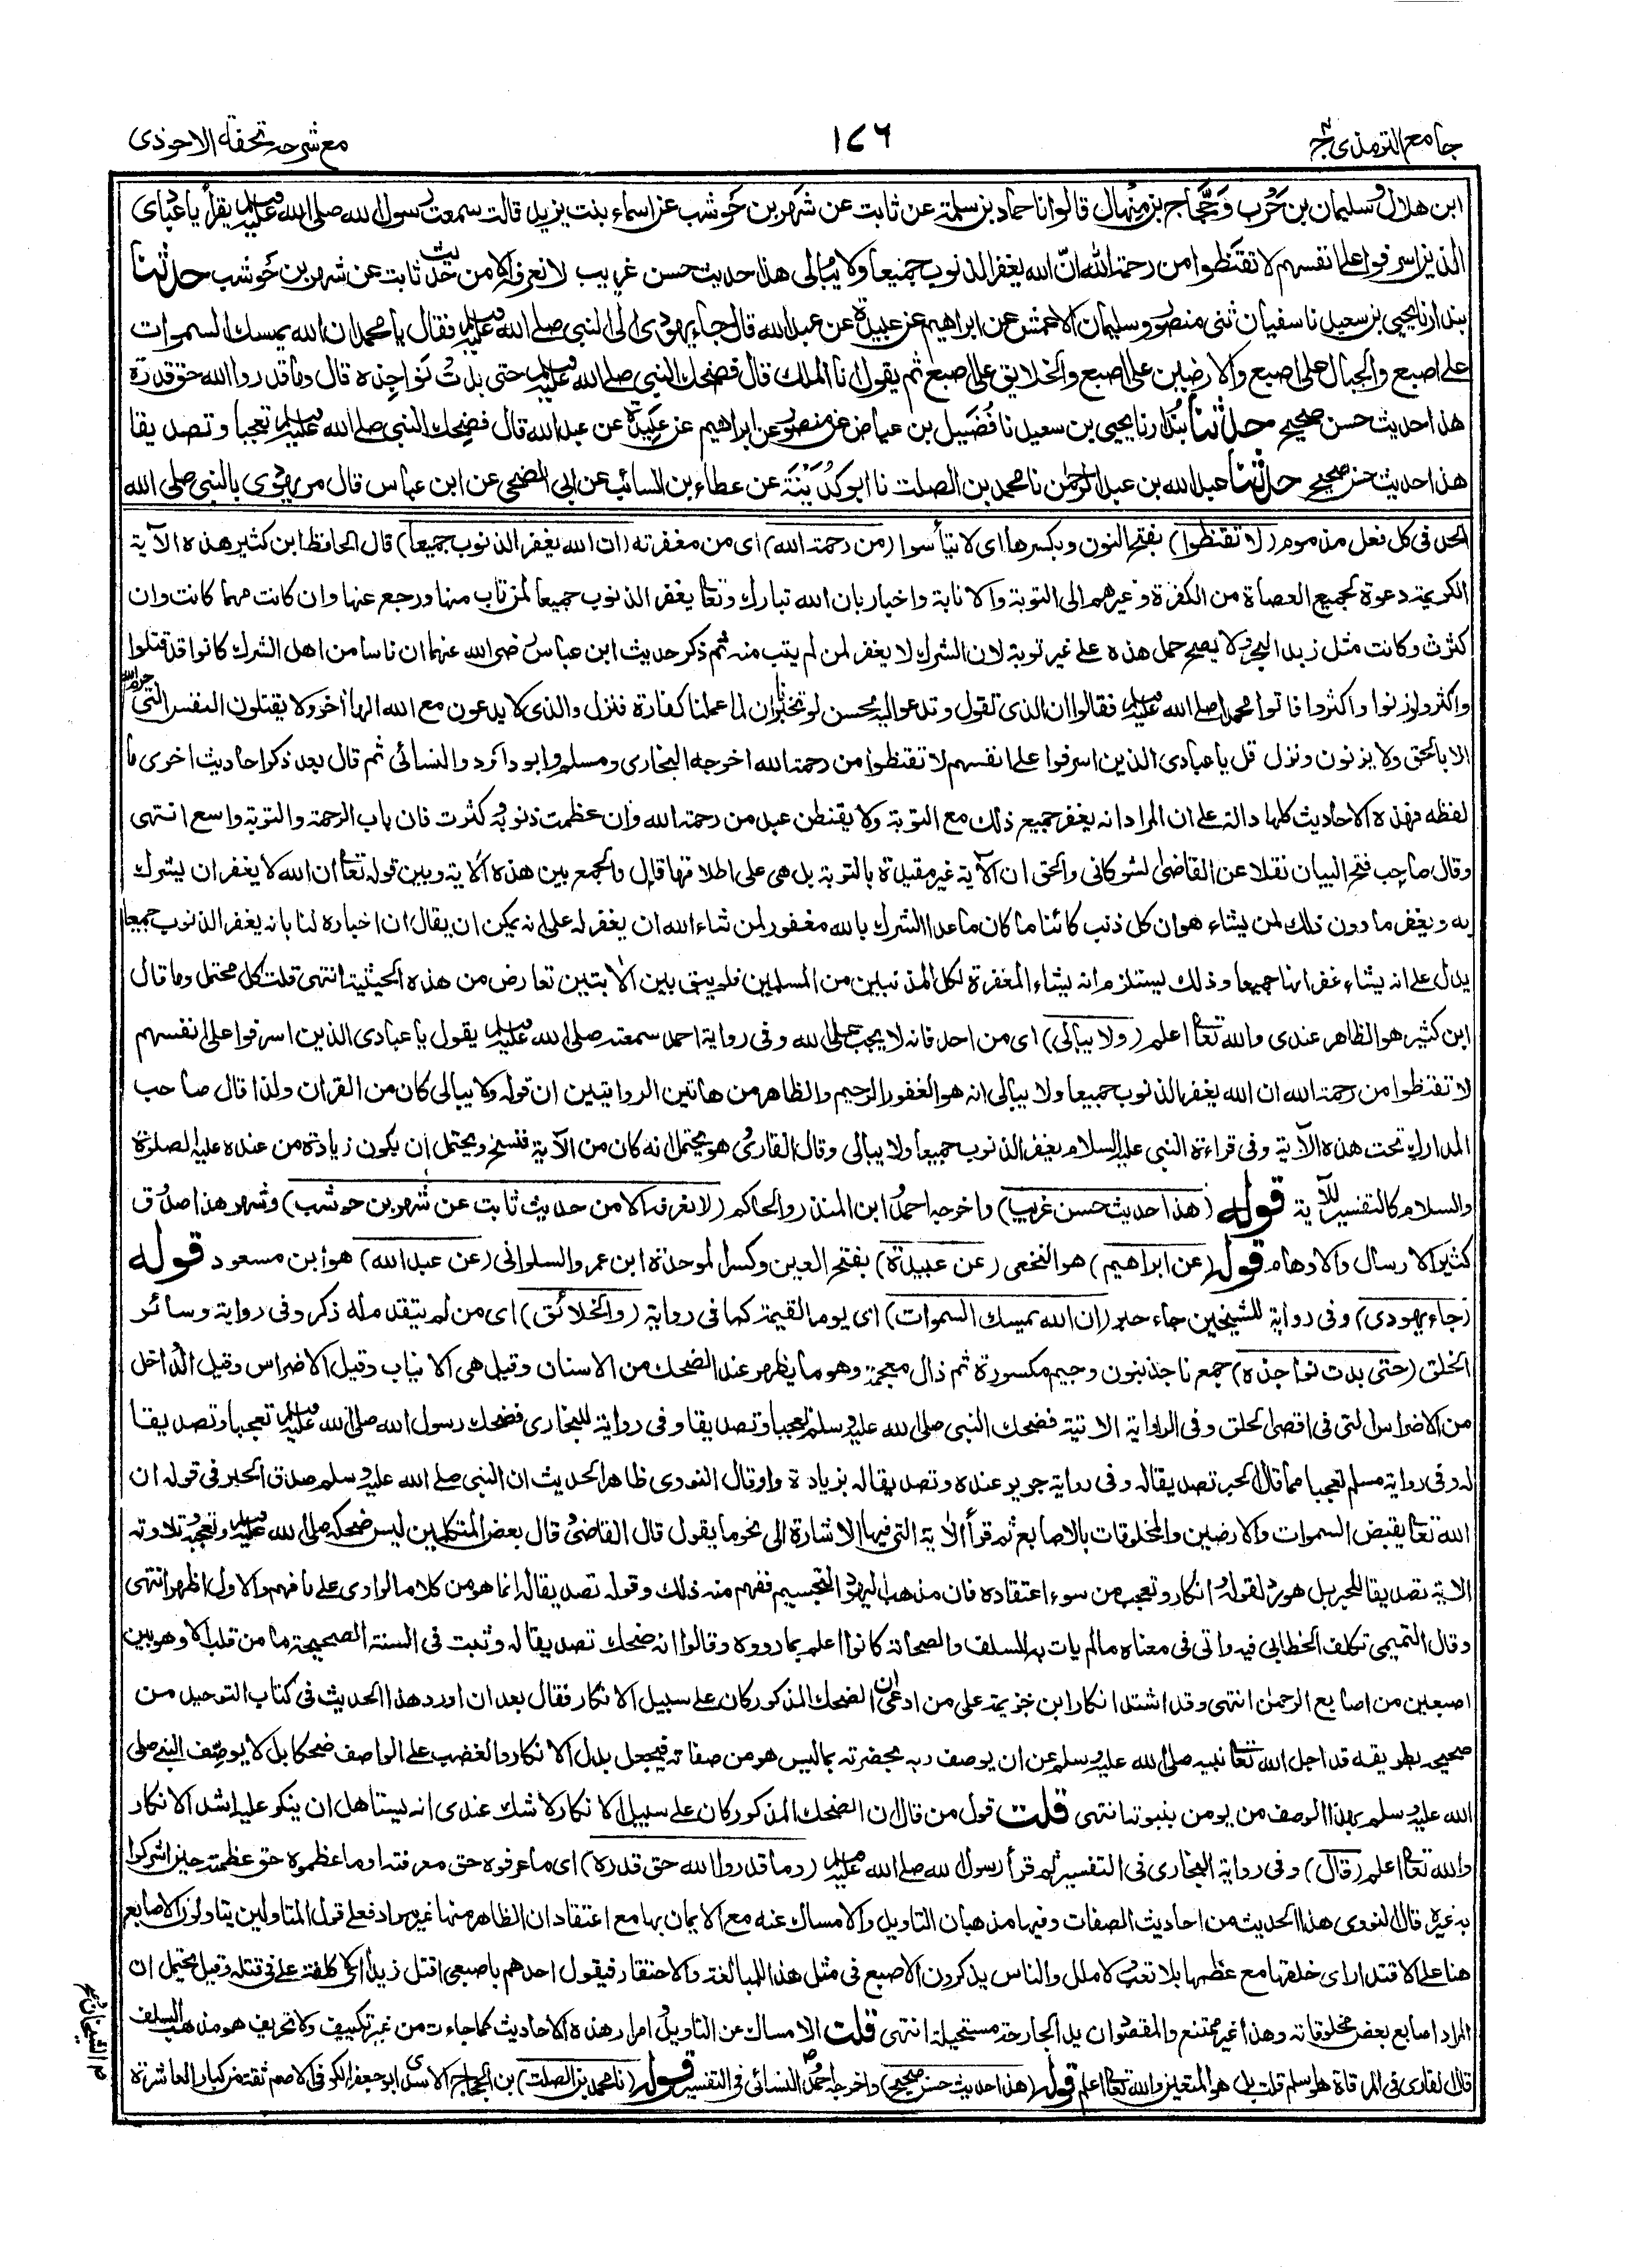 جامع الترمذی ج۴
١٧٦
مع شرحہ تحفۃ الاحوذی
ابن هلال وسليمان بن حَرْب وحَجَّاج بن مِنْهال قالوا نا حماد بن سلمة عن ثابت عن شهر بن حَوشب عن اسماء بنت يزيد قالت سمعت رسول الله صلى الله عليه وسلم يقرأ يا عبادى
الذين اسرفوا على انفسهم لا تقنطوا من رحمة الله انّ الله يغفر الذنوب جميعا ولا يبالى هذا حديث حسن غريب لا نعرفه الا من حديث ثابت عن شهر بن حَوشب حدثنا
بندار نا يحيى بن سعيد نا سفيان ثنى منصور وسليمان الاعمش عن ابراهيم عن عبيدة عن عبد الله قال جاء يهودى الى النبى صلى الله عليه وسلم فقال يا محمد ان الله يمسك السموات
على اصبع والجبال على اصبع والارضين على اصبع والخلايق على اصبع ثم يقول انا الملك قال فضحك النبى صلى الله عليه وسلم حتى بدت نواجذه قال وما قدروا الله حق قدره
هذا حديث حسن صحيح حدثنا بندار نا يحيى بن سعيد نا فُضَيل بن عياض عن منصور عن ابراهيم عن عَبِيدة عن عبد الله قال فضحك النبى صلى الله عليه وسلم تعجبا وتصديقا
هذا حديث حسن صحيح حدثنا عبد الله بن عبد الرحمن نا محمد بن الصلت نا ابو كُدَيْنَة عن عطاء بن السائب عن ابى الضحى عن ابن عباس قال مر يهودى بالنبى صلى الله
الحد فى كل فعل مذموم (لا تقنطوا) بفتح النون وبكسرها اى لا تيأسوا (من رحمة الله) اى من مغفرته (ان الله يغفر الذنوب جميعا) قال الحافظ ابن كثير هذه الآية
الكريمة دعوة لجميع العصاة من الكفرة وغيرهم الى التوبة والانابة واخبار بان الله تبارك وتعالى يغفر الذنوب جميعا لمن تاب منها ورجع عنها وان كانت مهما كانت وان
كثرت وكانت مثل زبد البحر ولا يصح حمل هذه على غير توبة لان الشرك لا يغفر لمن لم يتب منه ثم ذكر حديث ابن عباس رضى الله عنهما ان ناسا من اهل الشرك كانوا قد قتلوا
واكثروا وزنوا واكثروا فاتوا محمدا صلى الله عليه وسلم فقالوا ان الذى تقول وتدعو اليه لحسن لو تخبرنا ان لما عملنا كفارة فنزل والذى لا يدعون مع الله الها آخر ولا يقتلون النفس التى حرم الله
الا بالحق ولا يزنون ونزل قل يا عبادى الذين اسرفوا على انفسهم لا تقنطوا من رحمة الله اخرجه البخارى ومسلم وابو داؤد والنسائى ثم قال بعد ذكر احاديث اخرى ما
لفظه فهذه الاحاديث كلها دالة على ان المراد انه يغفر جميع ذلك مع التوبة ولا يقنطن عبد من رحمة الله وان عظمت ذنوبه وكثرت فان باب الرحمة والتوبة واسع انتهى
وقال صاحب فتح البيان نقلا عن القاضى الشوكانى والحق ان الآية غير مقيدة بالتوبة بل هى على اطلاقها قال والجمع بين هذه الآية وبين قوله تعالى ان الله لا يغفر ان يشرك
به ويغفر ما دون ذلك لمن يشاء هو ان كل ذنب كائنا ما كان ما عدا الشرك بالله مغفور لمن شاء الله ان يغفر له على انه يمكن ان يقال ان اخباره لنا بانه يغفر الذنوب جميعا
يدل على انه يشاء غفرانها جميعا وذلك يستلزم انه يشاء المغفرة لكل المذنبين من المسلمين فلم يبق بين الآيتين تعارض من هذه الحيثية انتهى قلت كل محتمل وما قال
ابن كثير هو الظاهر عندى والله تعالى اعلم (ولا يبالى) اى من احد فانه لا يجب على الله وفى رواية احمد سمعته صلى الله عليه وسلم يقول يا عبادى الذين اسرفوا على انفسهم
لا تقنطوا من رحمة الله ان الله يغفر الذنوب جميعا ولا يبالى انه هو الغفور الرحيم والظاهر من هاتين الروايتين ان قوله ولا يبالى كان من القران ولذا قال صاحب
المدارك تحت هذه الآية وفى قراءة النبى عليه السلام يغفر الذنوب جميعا ولا يبالى وقال القارى هو يحتمل انه كان من الآية فنسخ ويحتمل ان يكون زيادة من عنده عليه الصلوة
والسلام كالتفسير للآية قوله (هذا حديث حسن غريب) واخرجه احمد وابن المنذر والحاكم (لا نعرفه الا من حديث ثابت عن شهر بن حوشب) وشهر هذا صدوق
كثير الارسال والاوهام قوله (عن ابراهيم) هو النخعى (عن عبيدة) بفتح العين وكسر الموحدة ابن عمرو السلمانى (عن عبد الله) هو ابن مسعود قوله
(جاء يهودى) وفى رواية للشيخين جاء حبر (ان الله يمسك السموات) اى يوم القيمة كما فى رواية (والخلائق) اى من لم يتقدم له ذكر وفى رواية وسائر
الخلق (حتى بدت نواجذه) جمع ناجذ بنون وجيم مكسورة ثم ذال معجمة وهو ما يظهر عند الضحك من الاسنان وقيل هى الانياب وقيل الاضراس وقيل الداخل
من الاضراس التى فى اقصى الحلق وفى الرواية الاتية فضحك النبى صلى الله عليه وسلم تعجبا وتصديقا وفى رواية للبخارى فضحك رسول الله صلى الله عليه وسلم تعجبا وتصديقا
له وفى رواية مسلم تعجبا مما قال الحبر تصديقا له وفى رواية جرير عنده وتصديقا له بزيادة واو قال النووى ظاهر الحديث ان النبى صلى الله عليه وسلم صدق الحبر فى قوله ان
الله تعالى يقبض السموات والارضين والمخلوقات بالاصابع ثم قرأ الآية التى فيها الاشارة الى نحو ما يقول قال القاضى قال بعض المتكلمين ليس ضحكه صلى الله عليه وسلم وتعجبه وتلاوته
الاية تصديقا للحبر بل هو رد لقوله وانكار وتعجب من سوء اعتقاده فان مذهب اليهود التجسيم ففهم منه ذلك وقوله تصديقا له انما هو من كلام الراوى على ما فهم والاول اظهر انتهى
وقال التميمى تكلف الخطابى فيه واتى فى معناه ما لم يات به السلف والصحابة كانوا اعلم بما رووه وقالوا انه ضحك تصديقا له وثبت فى السنة الصحيحة ما من قلب الا وهو بين
اصبعين من اصابع الرحمن انتهى وقد اشتد انكار ابن خزيمة على من ادعى ان الضحك المذكور كان على سبيل الانكار فقال بعد ان اورد هذا الحديث فى كتاب التوحيد من
صحيحه بطريقه قد اجل الله تعالى نبيه صلى الله عليه وسلم عن ان يوصف ربه بحضرته بما ليس هو من صفاته فيجعل بدل الانكار والغضب على الواصف ضحكا بل لا يوصف النبى صلى
الله عليه وسلم بهذا الوصف من يومن بنبوته انتهى قلت قول من قال ان الضحك المذكور كان على سبيل الانكار لا شك عندى انه يستاهل ان ينكر عليه اشد الانكار
والله تعالى اعلم (قال) وفى رواية البخارى فى التفسير ثم قرأ رسول الله صلى الله عليه وسلم (وما قدروا الله حق قدره) اى ما عرفوه حق معرفته او ما عظموه حق عظمته حين اشركوا
به غيره قال النووى هذا الحديث من احاديث الصفات وفيها مذهبان التاويل والامساك عنه مع الايمان بها مع اعتقاد ان الظاهر منها غير مراد فعلى قول المتاولين يتاولون الاصابع
هنا على الاقتدار اى خلقها مع عظمها بلا تعب ولا ملل والناس يذكرون الاصبع فى مثل هذا للمبالغة والاحتقار فيقول احدهم باصبعى اقتل زيدا اى لا كلفة على فى قتله وقيل يحتمل ان
المراد اصابع بعض مخلوقاته وهذا غير ممتنع والمقصود ان يد الجارحة مستحيلة انتهى قلت الامساك عن التاويل وامرار هذه الاحاديث كما جاءت من غير تكييف ولا تحريف هو مذهب السلف
قال القارى فى المرقاة هو اسلم قلت بل هو المتعين والله تعالى اعلم قوله (هذا حديث حسن صحيح) واخرجه احمد والنسائى فى التفسير قوله (نا محمد بن الصلت) بن الحجاج الاسدى ابو جعفر الكوفى الاصم ثقة من كبار العاشرة
الشيخان